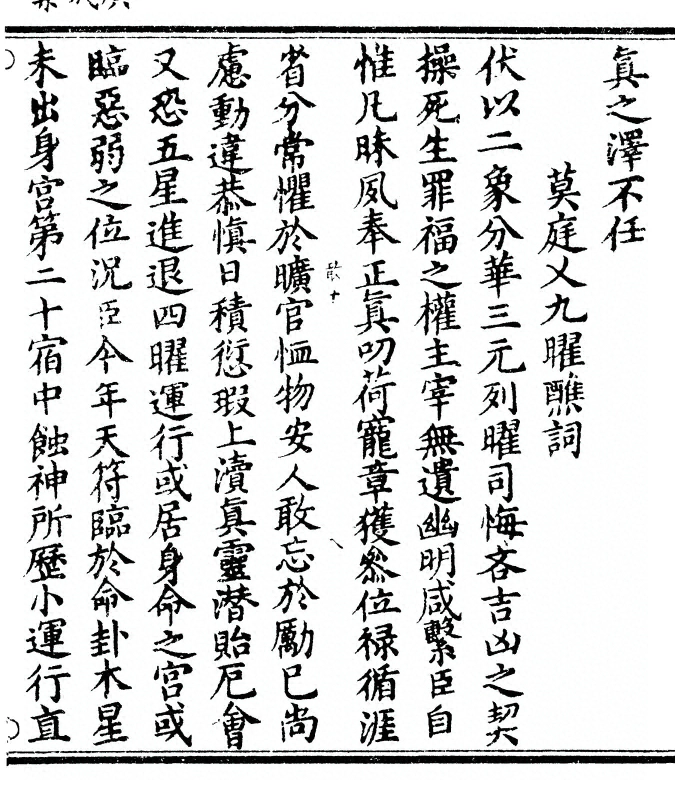 眞之澤不任
莫庭乂九曜醮詞
伏以二象分華三元列曜司悔吝吉凶之契
操死生罪福之權主宰無遺幽明咸繫臣自
惟凡昧夙奉正眞叨荷寵章獲叅位禄循涯
省分常懼於曠官恤物安人敢忘於勵已尚
慮動違恭愼日積愆瑕上瀆眞靈潜貽厄會
又恐五星進退四曜運行或居身命之宮或
臨惡弱之位况臣今年天符臨於命卦木星
未出身宮第二十宿中蝕神所歷小運行直